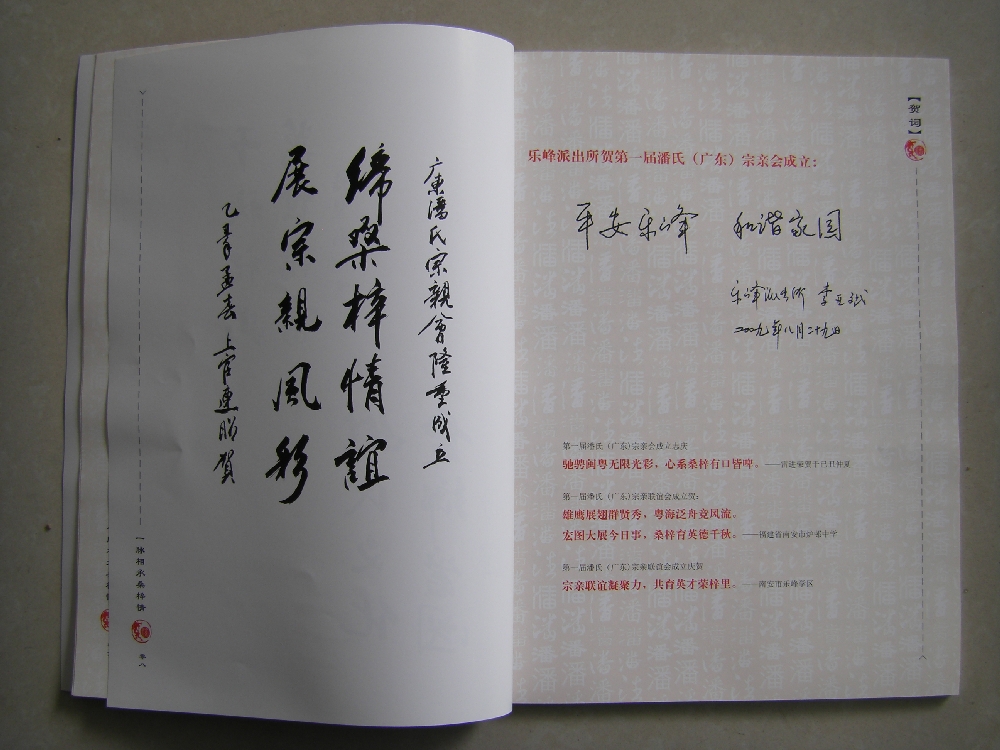 广東潘氏宗親會隆重成立
締桑梓情誼
展宗親風彩
孟春 上官連勝賀
一脉相承桑梓情
零八
【贺词】
乐峰派出所贺第一届潘氏（广东）宗亲会成立：
平安乐峰 和谐家园
乐峰派出所 李
二〇〇九年八月二十九日
第一届潘氏（广东）宗亲会成立志庆
驰骋闽粤无限光彩，心系桑梓有口皆啤。——雷进 贺于己丑仲夏
第一届潘氏（广东）宗亲联谊会成立贺：
雄鹰展翅群贤秀，粤海泛舟竞风流。
宏图大展今日事，桑梓育英德千秋。——福建省南安市炉 中学
第一届潘氏（广东）宗亲联谊会成立庆贺
宗亲联谊凝聚力，共育英才荣梓里。——南安市乐峰学区